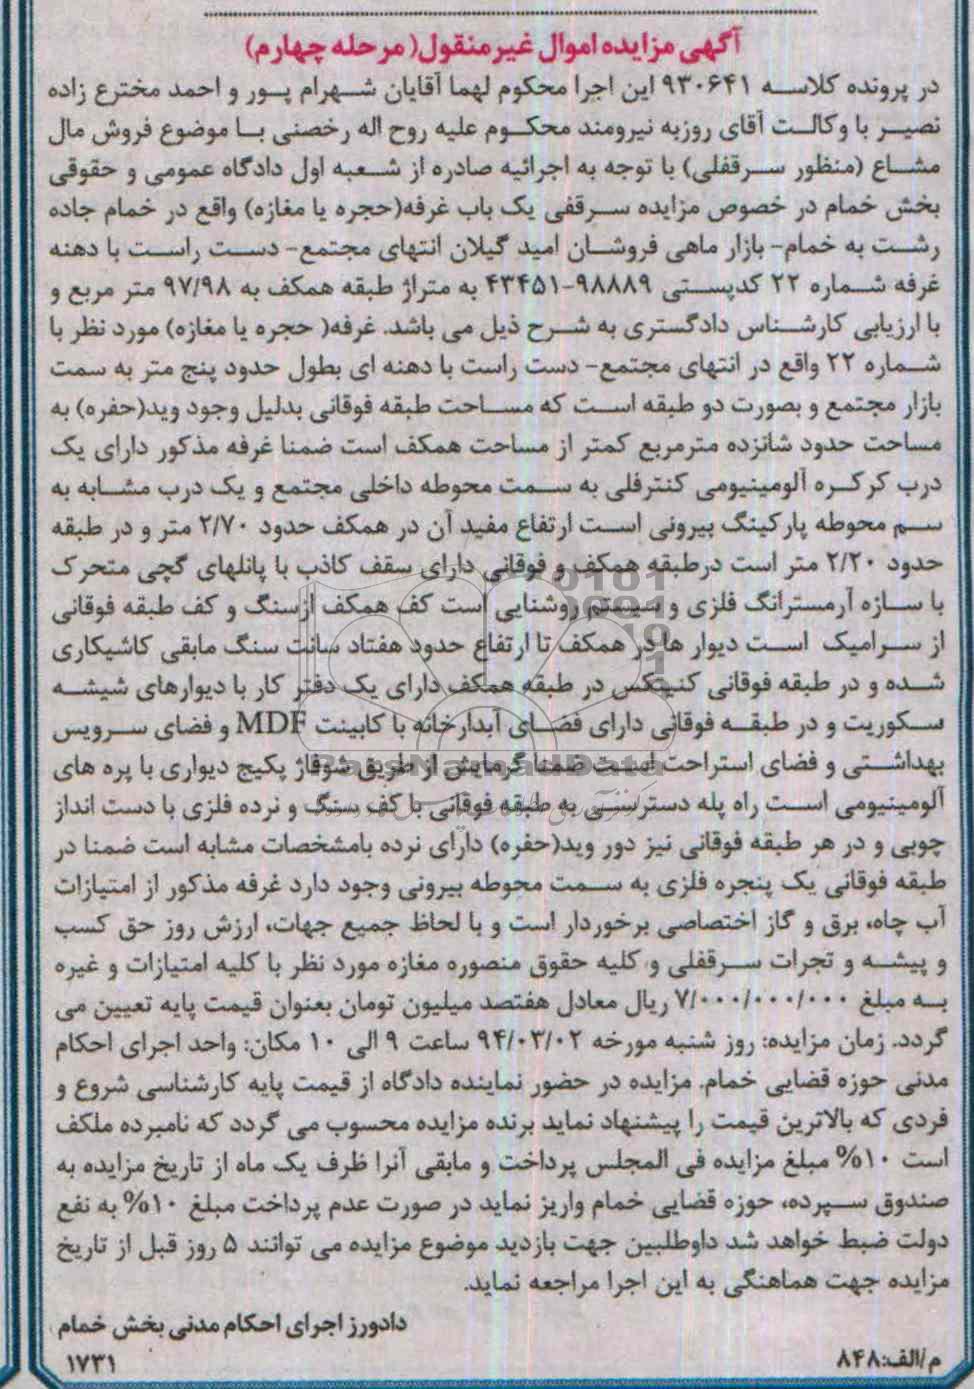 آگهی مزایده اموال غیرمنقول( مرحله چهارم)
در پرونده کلاسه ۹۳۰۶۴۱ این اجرا محکوم لهما آقایان شهرام پور و احمد مخترع زاده
نصیر با وکالت آقای روزبه نیرومند محکوم علیه روح اله رخصنی با موضوع فروش مال
مشاع (منظور سرقفلی) با توجه به اجرائیه صادره از شعبه اول دادگاه عمومی و حقوقی
بخش خمام در خصوص مزایده سرقفی یک باب غرفه(حجره یا مغازه) واقع در خمام جاده
رشت به خمام- بازار ماهی فروشان امید گیلان انتهای مجتمع- دست راست با دهنه
غرفه شماره ۲۲ کدپستی ۹۸۸۸۹-۴۳۴۵۱ به متراژ طبقه همکف به ۹۷/۹۸ متر مربع و
با ارزیابی کارشناس دادگستری به شرح ذیل می باشد. غرفه( حجره یا مغازه) مورد نظر با
شماره ۲۲ واقع در انتهای مجتمع- دست راست با دهنه ای بطول حدود پنج متر به سمت
بازار مجتمع و بصورت دو طبقه است که مساحت طبقه فوقانی بدلیل وجود وید(حفره) به
مساحت حدود شانزده مترمربع کمتر از مساحت همکف است ضمنا غرفه مذکور دارای یک
درب کرکره آلومینیومی کنترفلی به سمت محوطه داخلی مجتمع و یک درب مشابه به
سم محوطه پارکینگ بیرونی است ارتفاع مفید آن در همکف حدود ۲/۷۰ متر و در طبقه
حدود ۲/۲۰ متر است درطبقه همکف و فوقانی دارای سقف کاذب با پانلهای گچی متحرک
با سازه آرمسترانگ فلزی و سیستم روشنایی است کف همکف ازسنگ و کف طبقه فوقانی
از سرامیک است دیوار ها در همکف تا ارتفاع حدود هفتاد سانت سنگ مابقی کاشیکاری
شده و در طبقه فوقانی کنیتکس در طبقه همکف دارای یک دفتر کار با دیوارهای شیشه
سکوریت و در طبقه فوقانی دارای فضای آبدارخانه با کابینت MDF و فضای سرویس
بهداشتی و فضای استراحت است ضمنا گرمایش از طریق شوفاژ پکیج دیواری با پره های
آلومینیومی است راه پله دسترسی به طبقه فوقانی با کف سنگ و نرده فلزی با دست انداز
چوبی و در هر طبقه فوقانی نیز دور وید(حفره) دارای نرده بامشخصات مشابه است ضمنا در
طبقه فوقانی یک پنجره فلزی به سمت محوطه بیرونی وجود دارد غرفه مذکور از امتیازات
آب چاه، برق و گاز اختصاصی برخوردار است و با لحاظ جمیع جهات، ارزش روز حق کسب
و پیشه و تجرات سرقفلی و کلیه حقوق منصوره مغازه مورد نظر با کلیه امتیازات و غیره
به مبلغ ۷/۰۰۰/۰۰۰/۰۰۰ ریال معادل هفتصد میلیون تومان بعنوان قیمت پایه تعیین می
گردد. زمان مزایده: روز شنبه مورخه ۹۴/۰۳/۰۲ ساعت ۹ الی ۱۰ مکان: واحد اجرای احکام
مدنی حوزه قضایی خمام. مزایده در حضور نماینده دادگاه از قیمت پایه کارشناسی شروع و
فردی که بالاترین قیمت را پیشنهاد نماید برنده مزایده محسوب می گردد که نامبرده ملکف
است ۱۰% مبلغ مزایده فی المجلس پرداخت و مابقی آنرا ظرف یک ماه از تاریخ مزایده به
صندوق سپرده، حوزه قضایی خمام واریز نماید در صورت عدم پرداخت مبلغ ۱۰% به نفع
دولت ضبط خواهد شد داوطلبین جهت بازدید موضوع مزایده می توانند ۵ روز قبل از تاریخ
مزایده جهت هماهنگی به این اجرا مراجعه نماید.
دادورز اجرای احکام مدنی بخش خمام
م/الف:۸۴۸
۱۷۳۱
ParsNamadData